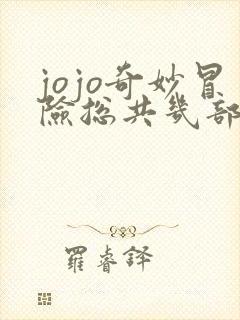 jojo奇妙冒
險総共幾部
羅睿鐸